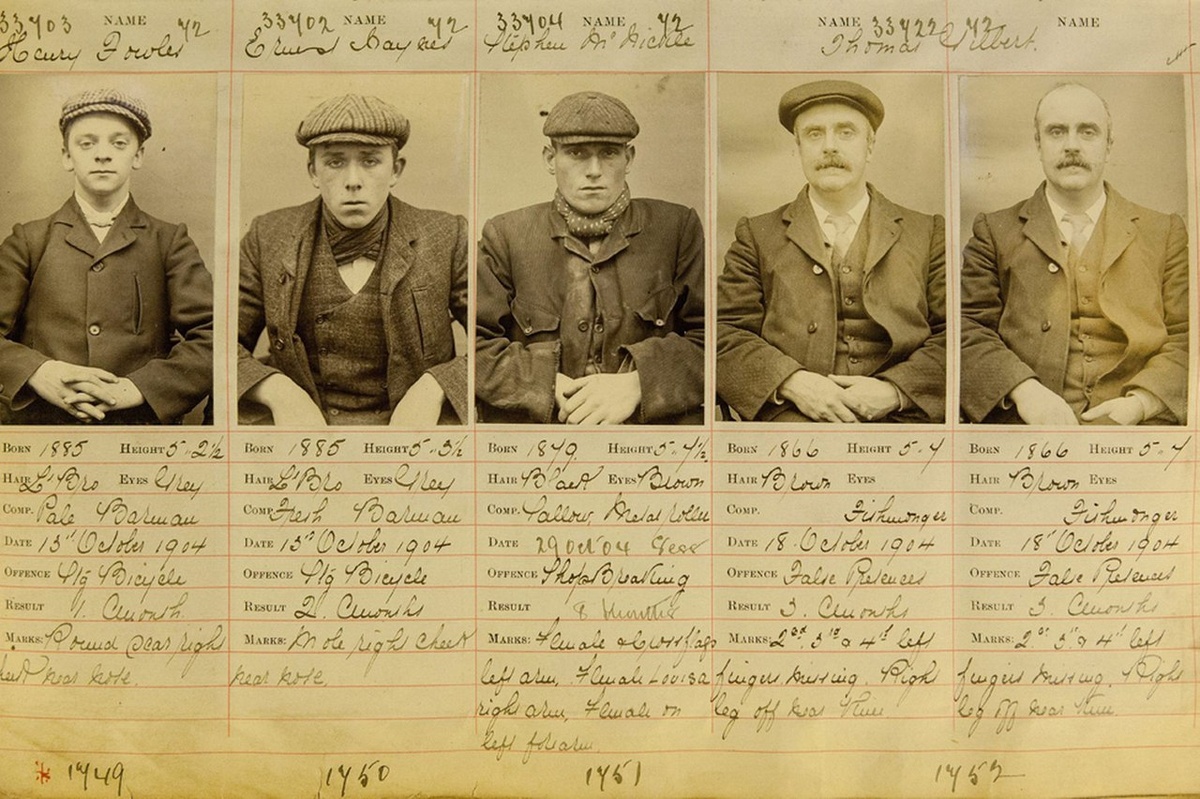 33703 NAME 42
Henry Fowler
BORN 1885 HEIGHT 5.. 2½
HAIR L' Bro EYES Grey
COMP. Pale Barman
DATE 13th October 1904
OFFENCE Stg Bicycle
RESULT 1. C month
MARKS: Round scar right
near nose.
* 1749
33702 NAME 42
Ernest Haynes
BORN 1885 HEIGHT 5.. 3½
HAIR L' Bro EYES Grey
COMP. Fresh Barman
DATE 13th October 1904
OFFENCE Stg Bicycle
RESULT 2. C months
MARKS: Mole right cheek
near nose.
1750
33704 NAME 42
Stephen Mc Nickle
BORN 1879 HEIGHT 5.. 4½
HAIR Black EYES Brown
COMP. Sallow, Metal roller
DATE 29 Oct 04 Sess
OFFENCE Shop Breaking
RESULT 8 Months
MARKS: Female & Cross flags
left arm, Female Louisa
right arm, Female on
left forearm.
1751
NAME 33722 42
Thomas Gilbert.
BORN 1866 HEIGHT 5.. 4
HAIR Brown EYES
COMP. Fishmonger
DATE 18. October 1904
OFFENCE False Pretences
RESULT 3. C months
MARKS: 2nd 3rd & 4th left
fingers missing. Right
leg off near knee
NAME
BORN 1866 HEIGHT 5.. 4
HAIR Brown EYES
COMP. Fishmonger
DATE 18th October 1904
OFFENCE False Pretences
RESULT 3. C months
MARKS: 2nd 3rd & 4th left
fingers missing. Right
leg off near knee.
1752